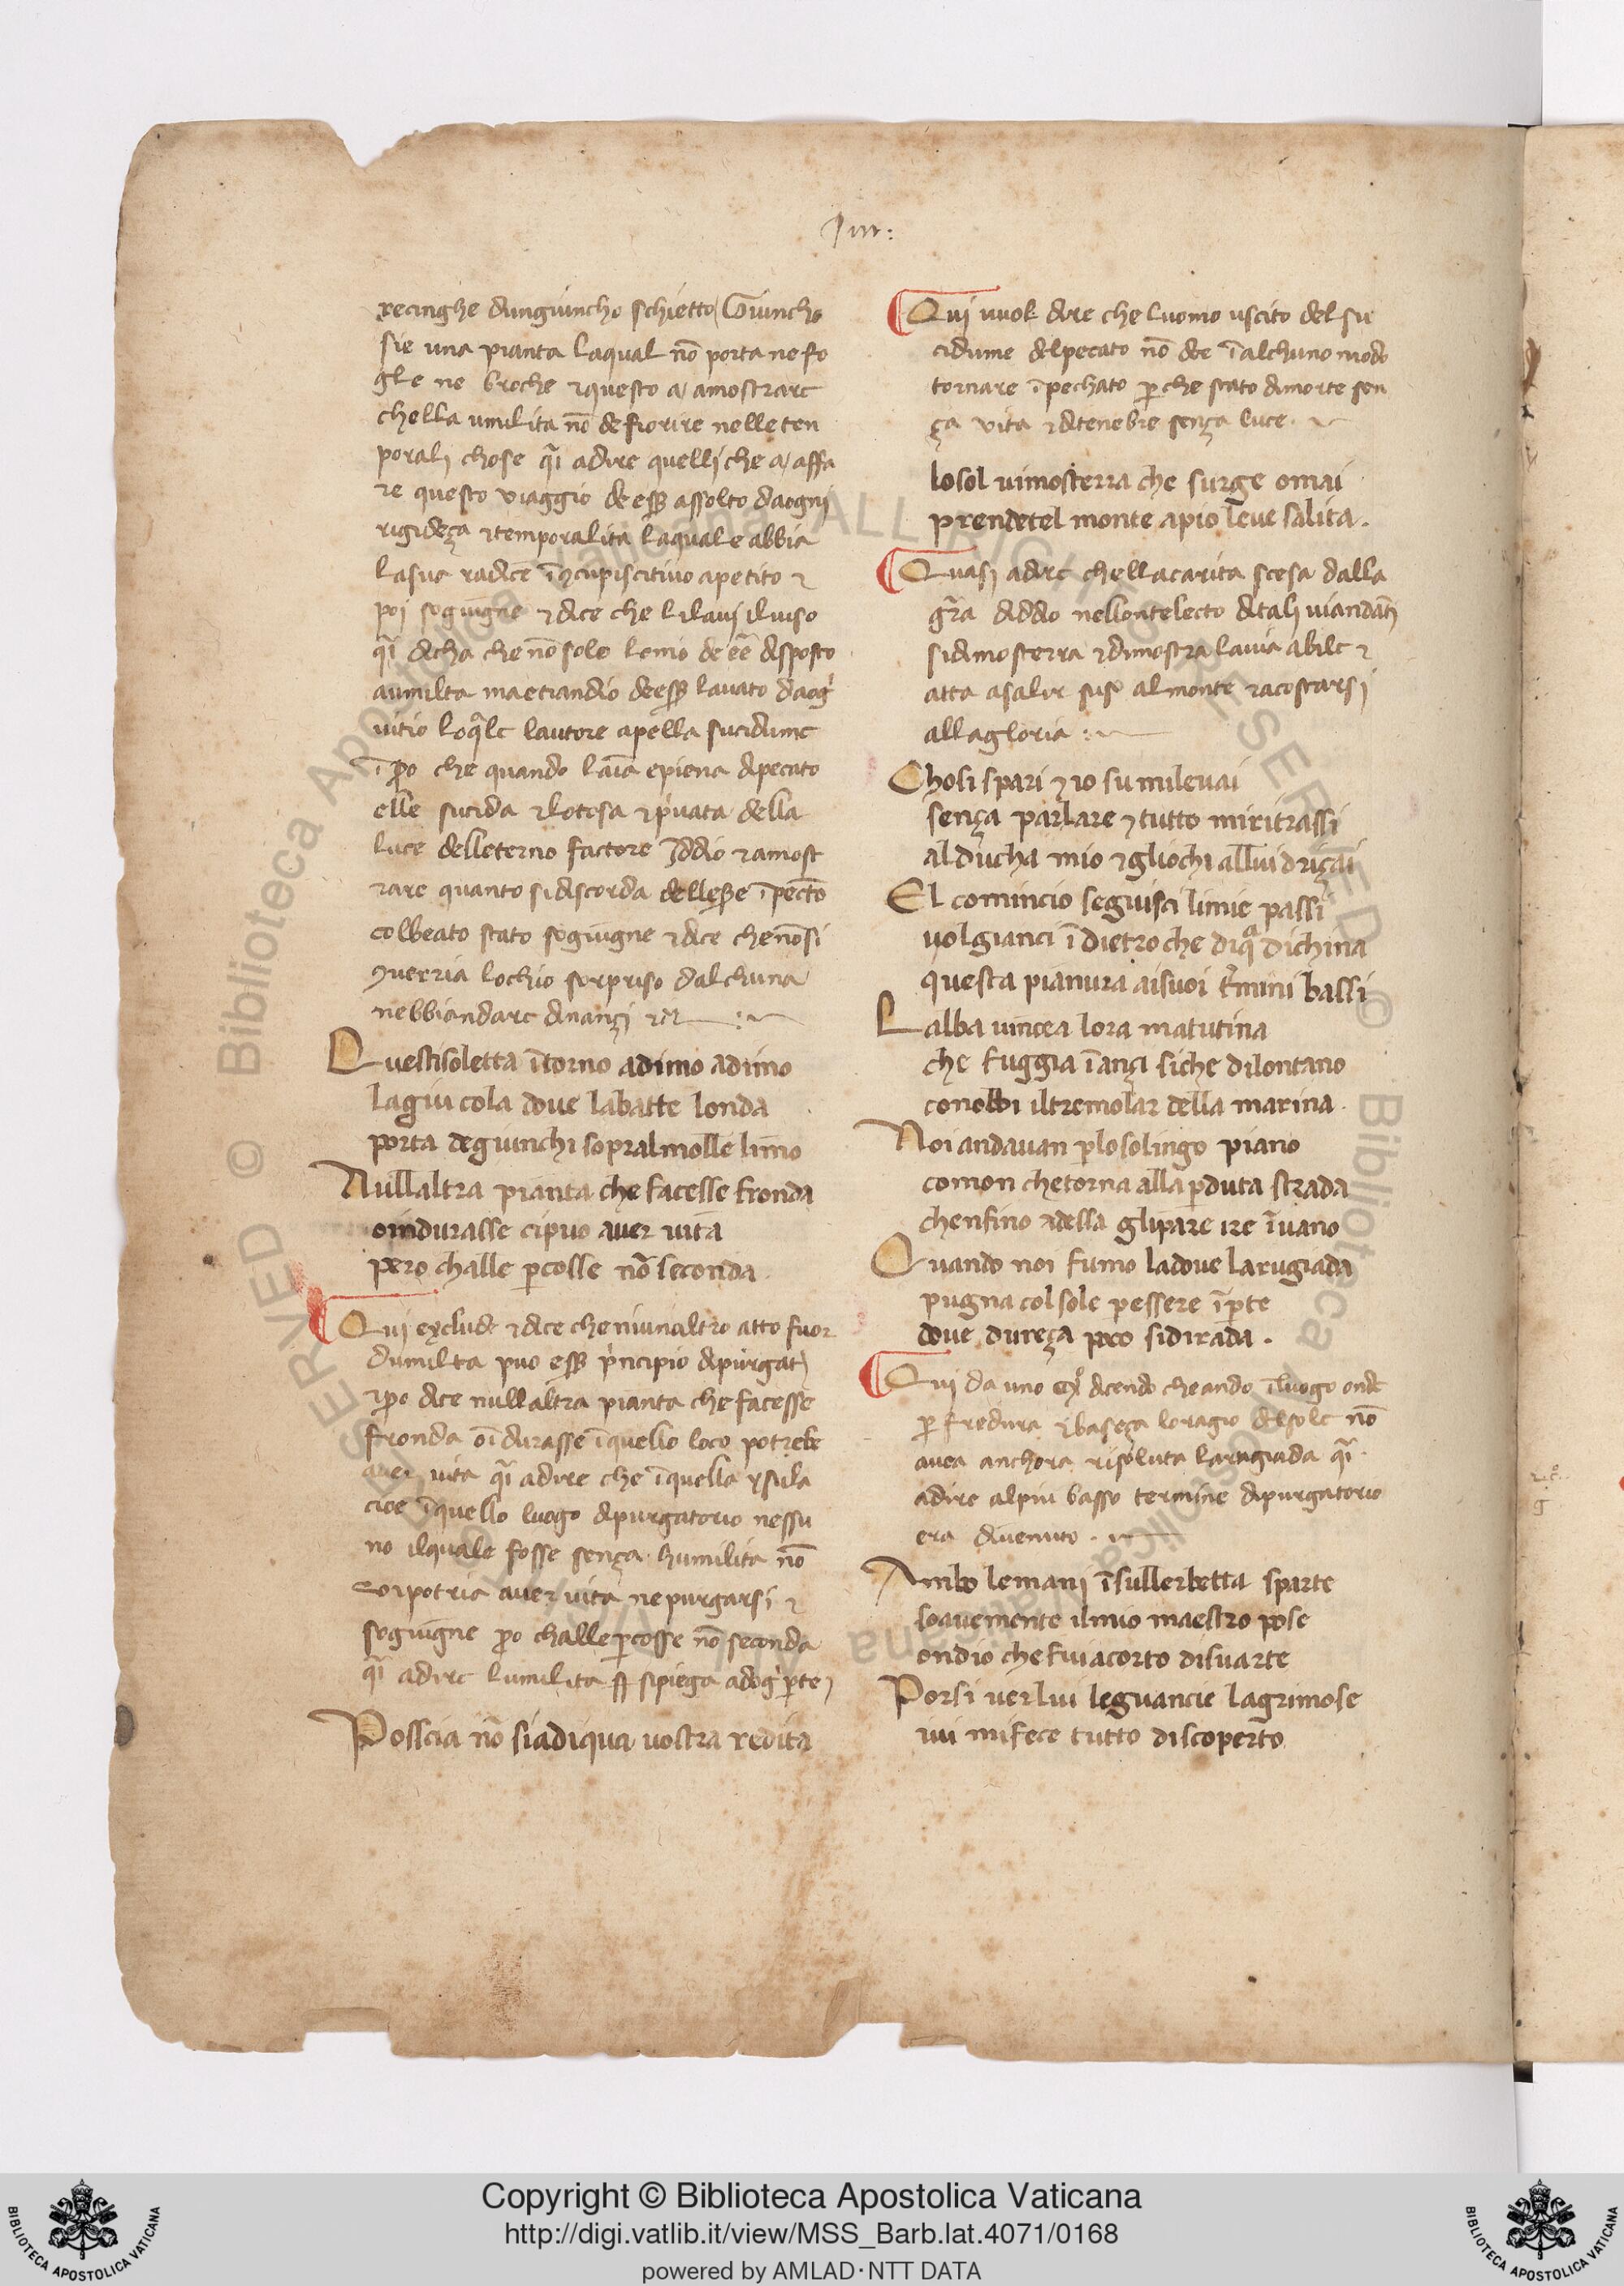 recinghe dungiuncho schietto / Giuncho
sie una pianta laqual nō porta ne fo
gle ne broche ⁊questo a / amostrare
chella umilita nō de fiorire nelle ten
porali chose q̄i adire quelli che a / affa
re questo viaggio de ess̄ assolto daogni
rigideça ⁊temporalita laquale abbia
lasua radice īꝯcupiscitivo apetito ⁊
poi sogiūgne ⁊dice che li lavi il viso
q̄i dicha che nō solo lomo de ēē disposto
aumilta ma etiandio de ess̄ lavato daog
vitio loq̄le lautore apella sucidume
īpo che quando laīa epiena dipecato
elle sucida ⁊lotosa ⁊p̄vata della
luce delleterno factore Iddio ⁊amost
rare quanto sidiscorda dellesse ī pecto
colbeato stato sogiugne ⁊dice chenōsi
ꝯverria lochio sorpriso dalchuna
nebbiandare dinançi
Questisoletta ītorno adimo adimo
lagiu cola dove labatte londa
porta degiunchi sopralmolle limo
Nullaltra pianta che facesse fronda
oindurasse cipuo aver vita
pero challe ꝑcosse nō seconda
Qui exclude ⁊dice cheniunaltro atto fuor
dumilta puo ess̄ pricipio dipurgat
⁊ꝑo dice nullaltra pianta che facesse
fronda oīdurasse īquello loco potrebe
aver vita q̄i adire che īquella ysula
cioe īquello luogo dipurgatorio nessu
no ilquale fosse sença humilita nō
potria aver vita ne purgarsi ⁊
sogiugne ꝑo challe ꝑcosse nō seconda
q̄i adire lumilita sipiega adog ꝑte
Posscia nō siadiqua vostra redita
Qui vuol dire che luomo uscito del su
cidume delpecato nō dee ī alchuno modo
tornare īpechato ꝑche stato dimorte sen
ça vita ⁊ditenebre sença luce
losol vimosterra che surge omai
prendetel monte apio leve salita.
Quasi adire chella carita scesa dalla
gr̄a diddio nellontelecto ditali viandāti
sidimosterra ⁊dimostra lavia abile ⁊
atta asalir suso almonte ⁊acostarsi
allagloria
Chosi spari ⁊ io su milevai
sença parlare ⁊ tutto miritrassi
alducha mio ⁊gliochi allui driçai
El comincio seguisci limie passi
volgianci īdietro che diq̄ dichina
questa pianura aisuoi t̄mini bassi
Lalba vincea lora matutina
che fuggia īançi siche dilontano
conobbi iltremolar della marina.
Noi andavan ꝑlosolingo piano
comon chetorna alla ꝑduta strada
chenfino adella glipare ire īvano
Quando noi fumo ladove larugiada
pugna col sole pessere īꝑte
dove dureça poco sidirada.
Qui da uno exº dicendo che ando īluogo onde
ꝑ fredura ⁊baseça loragio delsole nō
avea anchora risoluta larugiada q̄i
adire alpiu basso termine dipurgatorio
era divenuto.
Ambo lemani īsullerbetta sparte
soavemente ilmio maestro pose
ondio che fui acorto disuarte
Porsi verlui leguancie lagrimose
ivi mifece tutto discoperto
Copyright © Biblioteca Apostolica Vaticana
http://digi.vatlib.it/view/MSS_Barb.lat.4071/0168
powered by AMLAD·NTT DATA
BIBLIOTECA APOSTOLICA VATICANA
BIBLIOTECA APOSTOLICA VATICANA